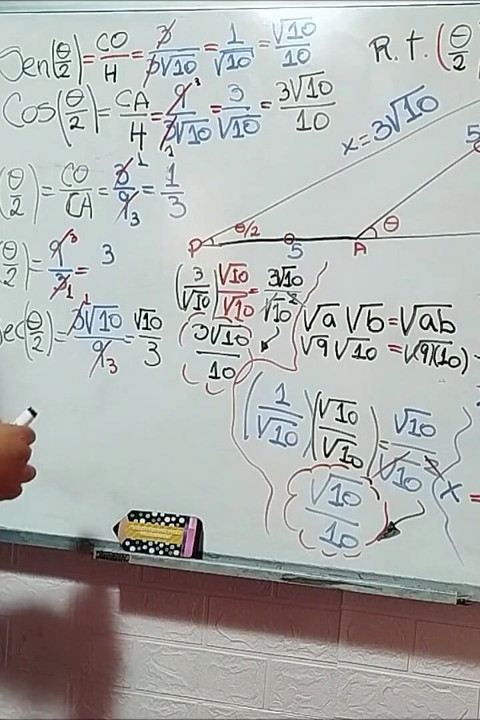 Sen(θ/2)=CO/H=3/3√10=1/√10=√10/10
R.t.(θ/2
Cos(θ/2)=CA/H=9³/3√10=3/√10=3√10/10
x=3√10
5
(θ/2)=CO/CA=3¹/9₃=1/3
θ/2
θ
P
5
A
θ/2)=9³/3₁=3
(3/√10)(√10/√10)=3√10/√10²
3√10/10
ec(θ/2)=3¹√10/9₃=√10/3
√a √b=√ab
√9 √10=√(9)(10)
(1/√10)(√10/√10)=√10/√10²
x=
√10/10